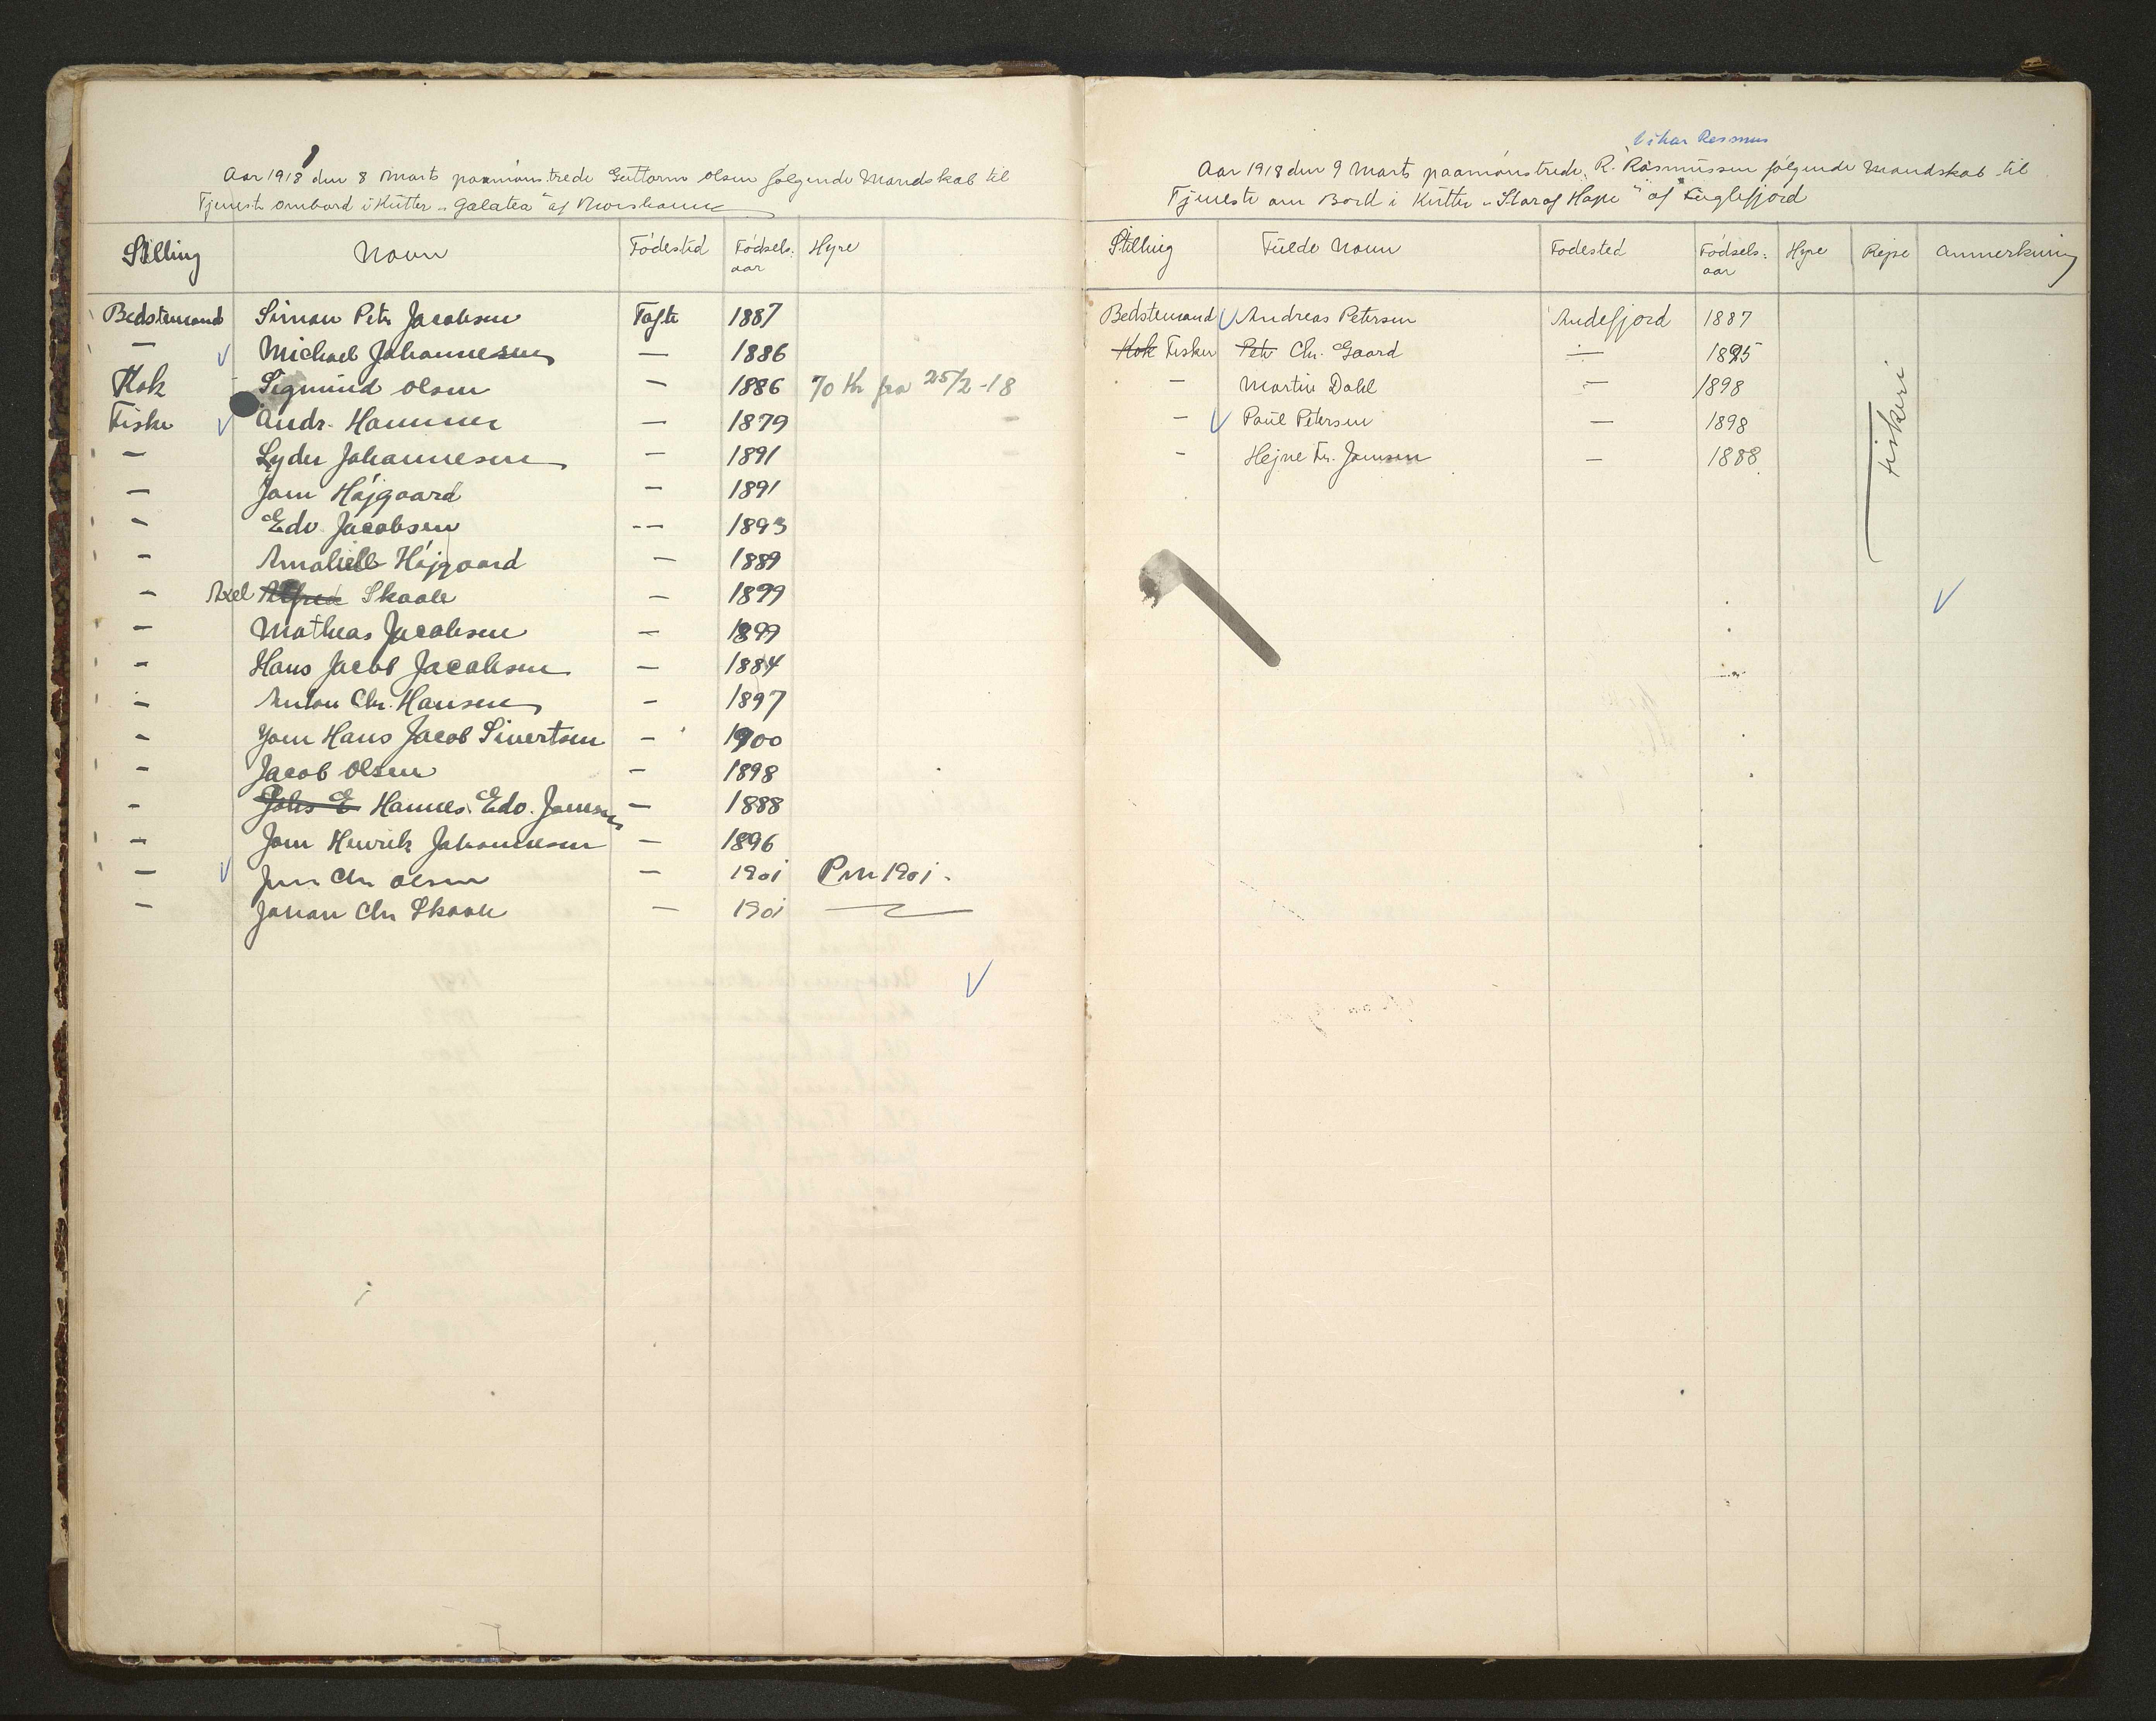 Aar 1918 den 8 Marts paamönstrede Guttorm Olsen følgende Mandskab til
Tjeneste ombord i Kutter „Galatea" af Thorshavn
Stilling Navn Födested Födsels: aar Hyre
Bedstemand Simon Petr Jacobsen Tofte 1887
— Michael Johannesen — 1886
Kok Sigmund Olsen — 1886 70 Kr fra 25/2-18
Fisker Andr. Hammer — 1879 —
— Lyder Johannesen — 1891 —
— Joen Höjgaard — 1891
— Edv. Jacobsen -- 1893
— Höjgaard — 1889
— Axel Alfred Skaale — 1899
— Mathias Jacobsen — 1899
— Hans Jacob Jacobsen — 1884
— Anton Chr. Hansen — 1897
— Joen Hans Jacob Sivertsen — 1900
— Jacob Olsen — 1898
— Johs E Hannes Edv. Joensen — 1888
— Joen Henrik Johannesen — 1896
— Chr Olsen — 1901 1901.
— Johan Chr Skaale — 1901
Rasmus
Aar 1918 den 9 Marts paamönstrede R. Rasmussen følgende Mandskab til
Tjeneste om Bord i Kutter „Star of Hope" af Fuglefjord
Stilling Fulde Navn Födested Födsels: aar Hyre Rejse Anmerkning
Bedstemand Andreas Petersen Andefjord 1887
Kok Fisker Petr Chr. Gaard — 1895
— Martin Dahl — 1898
— Paul Petersen — 1898
— Hejne Fr. Joensen — 1888
Fiskeri